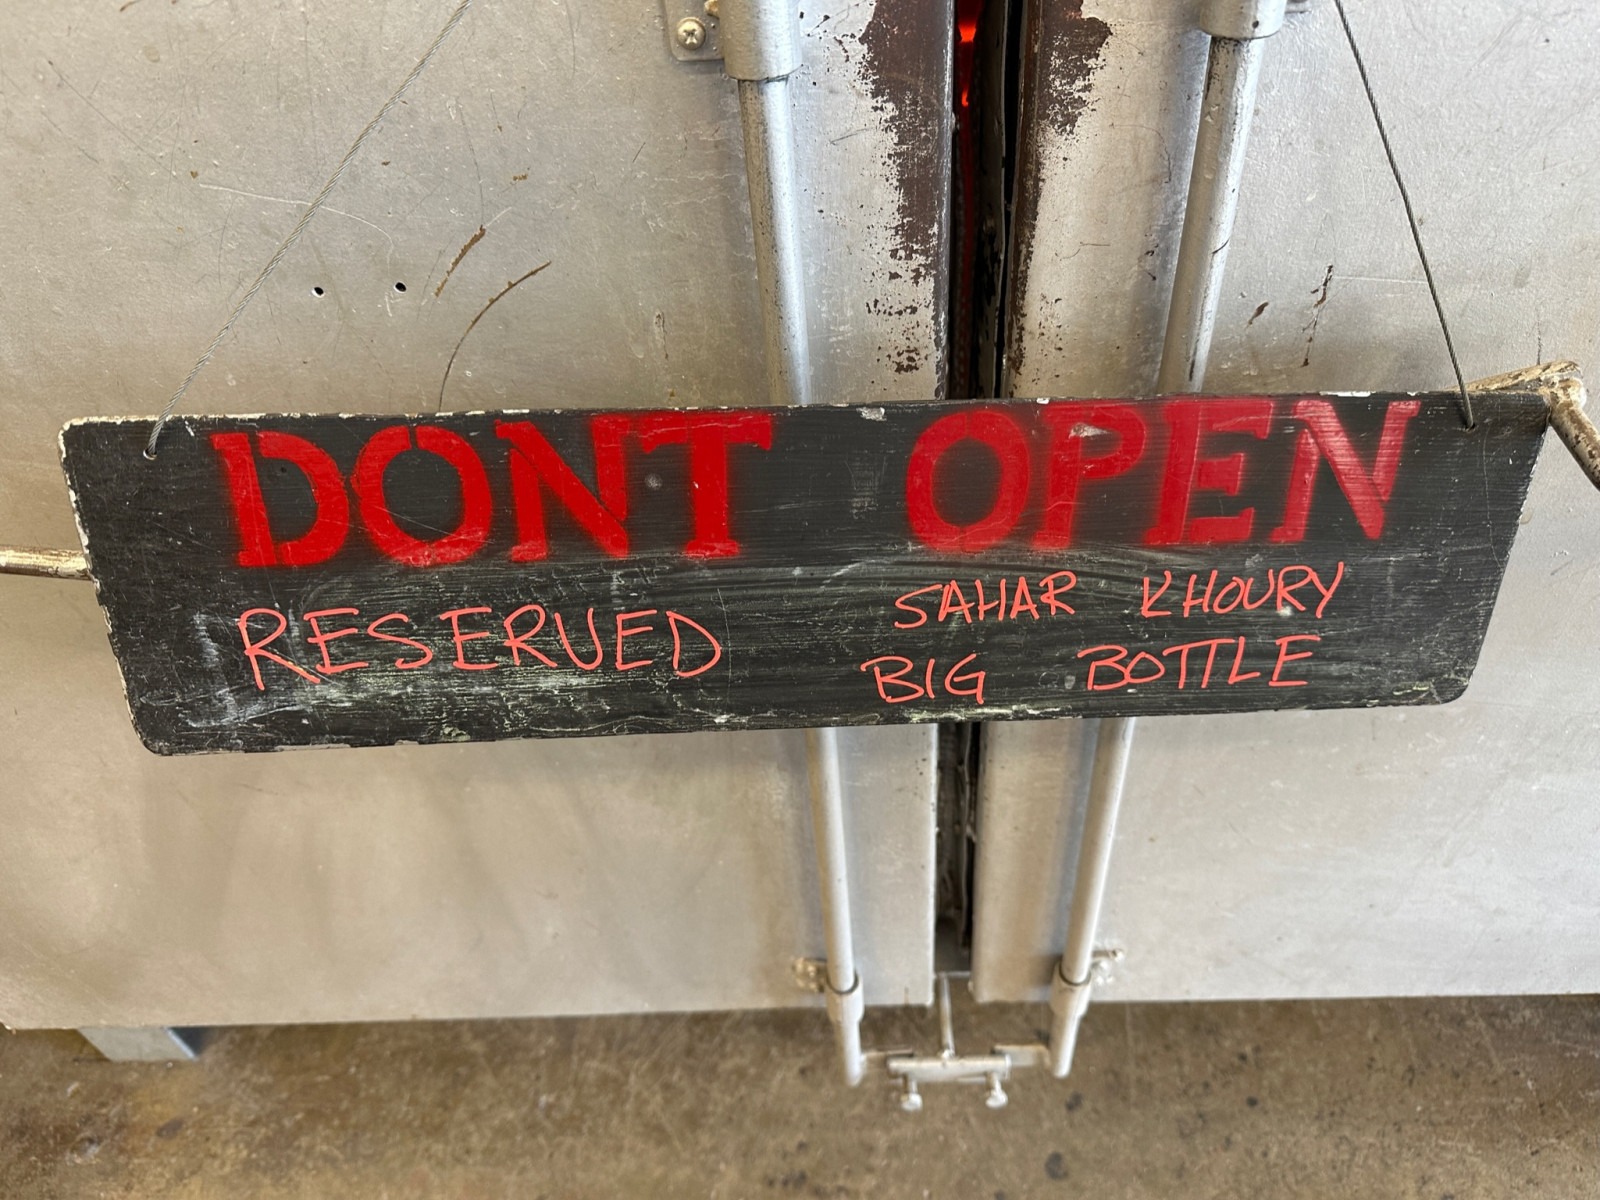 DONT OPEN
RESERVED
SAHAR KHOURY
BIG BOTTLE